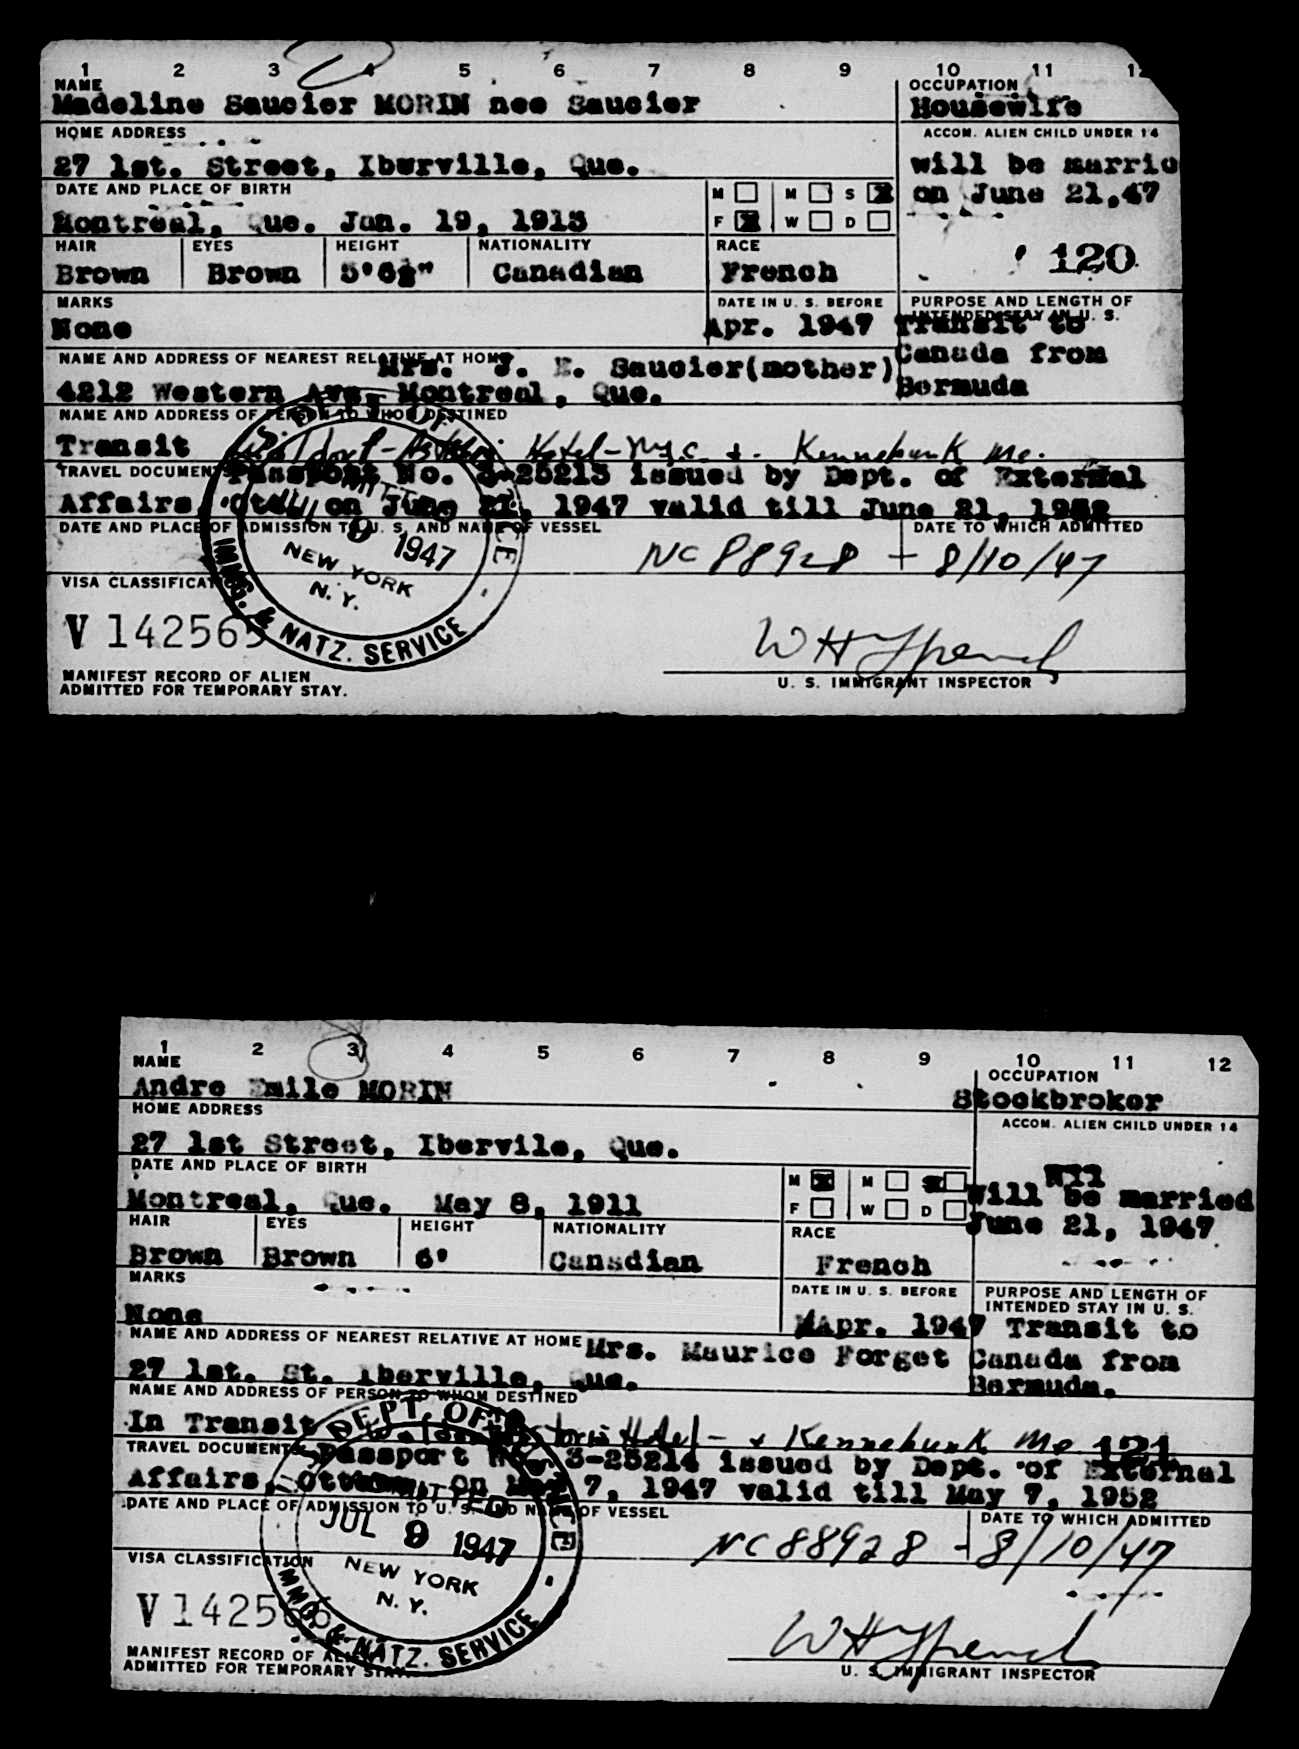 1 2 3 4 5 6 7 8 9 10 11 12
NAME
Madeline Saucier MORIN nee Saucier
OCCUPATION
Housewife
HOME ADDRESS
27 1st. Street, Iberville, Que.
ACCOM. ALIEN CHILD UNDER 14
will be marrie
on June 21,47
DATE AND PLACE OF BIRTH
Montreal, Que. Jan. 19, 1913
M M S X
F X W D
120
HAIR EYES HEIGHT NATIONALITY RACE
Brown Brown 5'6½" Canadian French
MARKS
None
DATE IN U. S. BEFORE
Apr. 1947
PURPOSE AND LENGTH OF
INTENDED STAY IN U. S.
Transit to
Canada from
Bermuda
NAME AND ADDRESS OF NEAREST RELATIVE AT HOME
Mrs. J. E. Saucier(mother)
4212 Western Ave, Montreal, Que.
NAME AND ADDRESS OF PERSON TO WHOM DESTINED
Transit Hotel-N.Y.C. + Kennebunk Me.
TRAVEL DOCUMENT Passport No. 3-25213 issued by Dept. of External
Affairs, Ottawa on June 21, 1947 valid till June 21, 1952
DATE AND PLACE OF ADMISSION TO U. S. AND NAME OF VESSEL
DATE TO WHICH ADMITTED
NC 88928 - 8/10/47
DEPT. OF
ADMITTED
JUL 9 1947
NEW YORK
N. Y.
IMMIG. & NATZ. SERVICE
VISA CLASSIFICAT
V 142565
W H Spend
MANIFEST RECORD OF ALIEN
ADMITTED FOR TEMPORARY STAY.
U. S. IMMIGRANT INSPECTOR
1 2 3 4 5 6 7 8 9 10 11 12
NAME
Andre Emile MORIN
OCCUPATION
Stockbroker
HOME ADDRESS
27 1st Street, Ibervile, Que.
ACCOM. ALIEN CHILD UNDER 14
Nil
Will be married
June 21, 1947
DATE AND PLACE OF BIRTH
Montreal, Que. May 8, 1911
M X M S X
F W D
HAIR EYES HEIGHT NATIONALITY RACE
Brown Brown 6' Canadian French
MARKS
None
DATE IN U. S. BEFORE
Apr. 1947
PURPOSE AND LENGTH OF
INTENDED STAY IN U. S.
Transit to
Canada from
Bermuda.
NAME AND ADDRESS OF NEAREST RELATIVE AT HOME
Mrs. Maurice Forget
27 1st. St. Iberville, Que.
NAME AND ADDRESS OF PERSON TO WHOM DESTINED
In Transit Hotel - + Kennebunk Me 121
TRAVEL DOCUMENT Passport No. 3-25214 issued by Dept. of External
Affairs, Ottawa, on May 7, 1947 valid till May 7, 1952
DATE AND PLACE OF ADMISSION TO U. S. AND NAME OF VESSEL
DATE TO WHICH ADMITTED
NC 88928 - 8/10/47
DEPT. OF
ADMITTED
JUL 9 1947
NEW YORK
N. Y.
IMMIG. & NATZ. SERVICE
VISA CLASSIFICATION
V 142566
W H Spend
MANIFEST RECORD OF ALIEN
ADMITTED FOR TEMPORARY STAY.
U. S. IMMIGRANT INSPECTOR